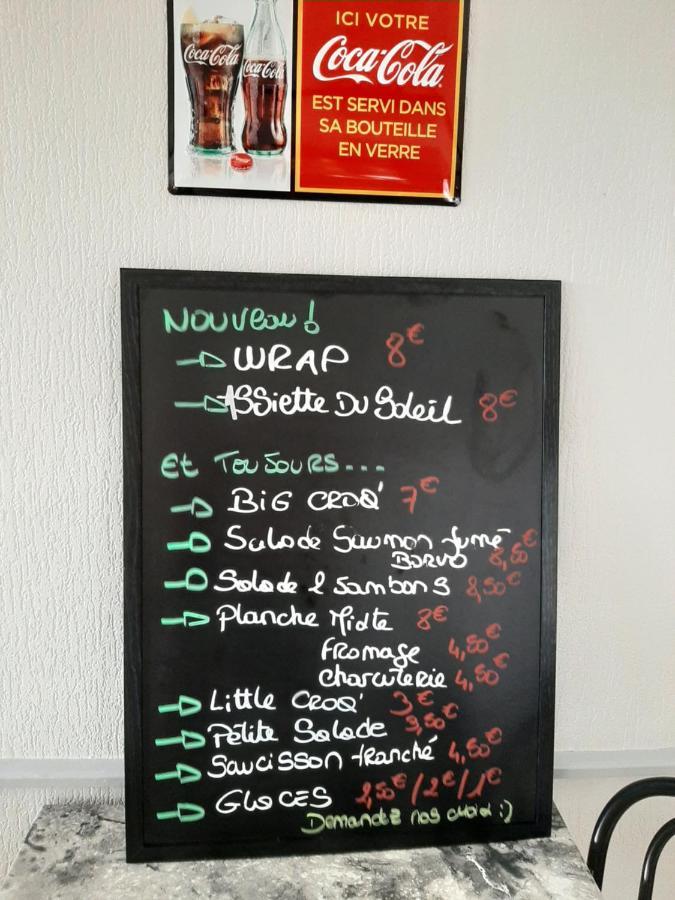 ICI VOTRE
Coca-Cola
EST SERVI DANS
SA BOUTEILLE
EN VERRE
Coca-Cola
Coca-Cola
NOUVEAU !
WRAP 8€
ASSiette DU Soleil 8€
Et TOUJOURS...
BiG CROQ' 7€
Salade Saumon fumé
BORVO 8,50€
Salade 2 Jambons 8,50€
Planche Mixte 8€
Fromage 4,50€
Charcuterie 4,50€
Little CROQ' 3€
Petite Salade 3,50€
Saucisson tranché 4,50€
GLACES 2,50€/2€/1€
Demandez nos choix :)